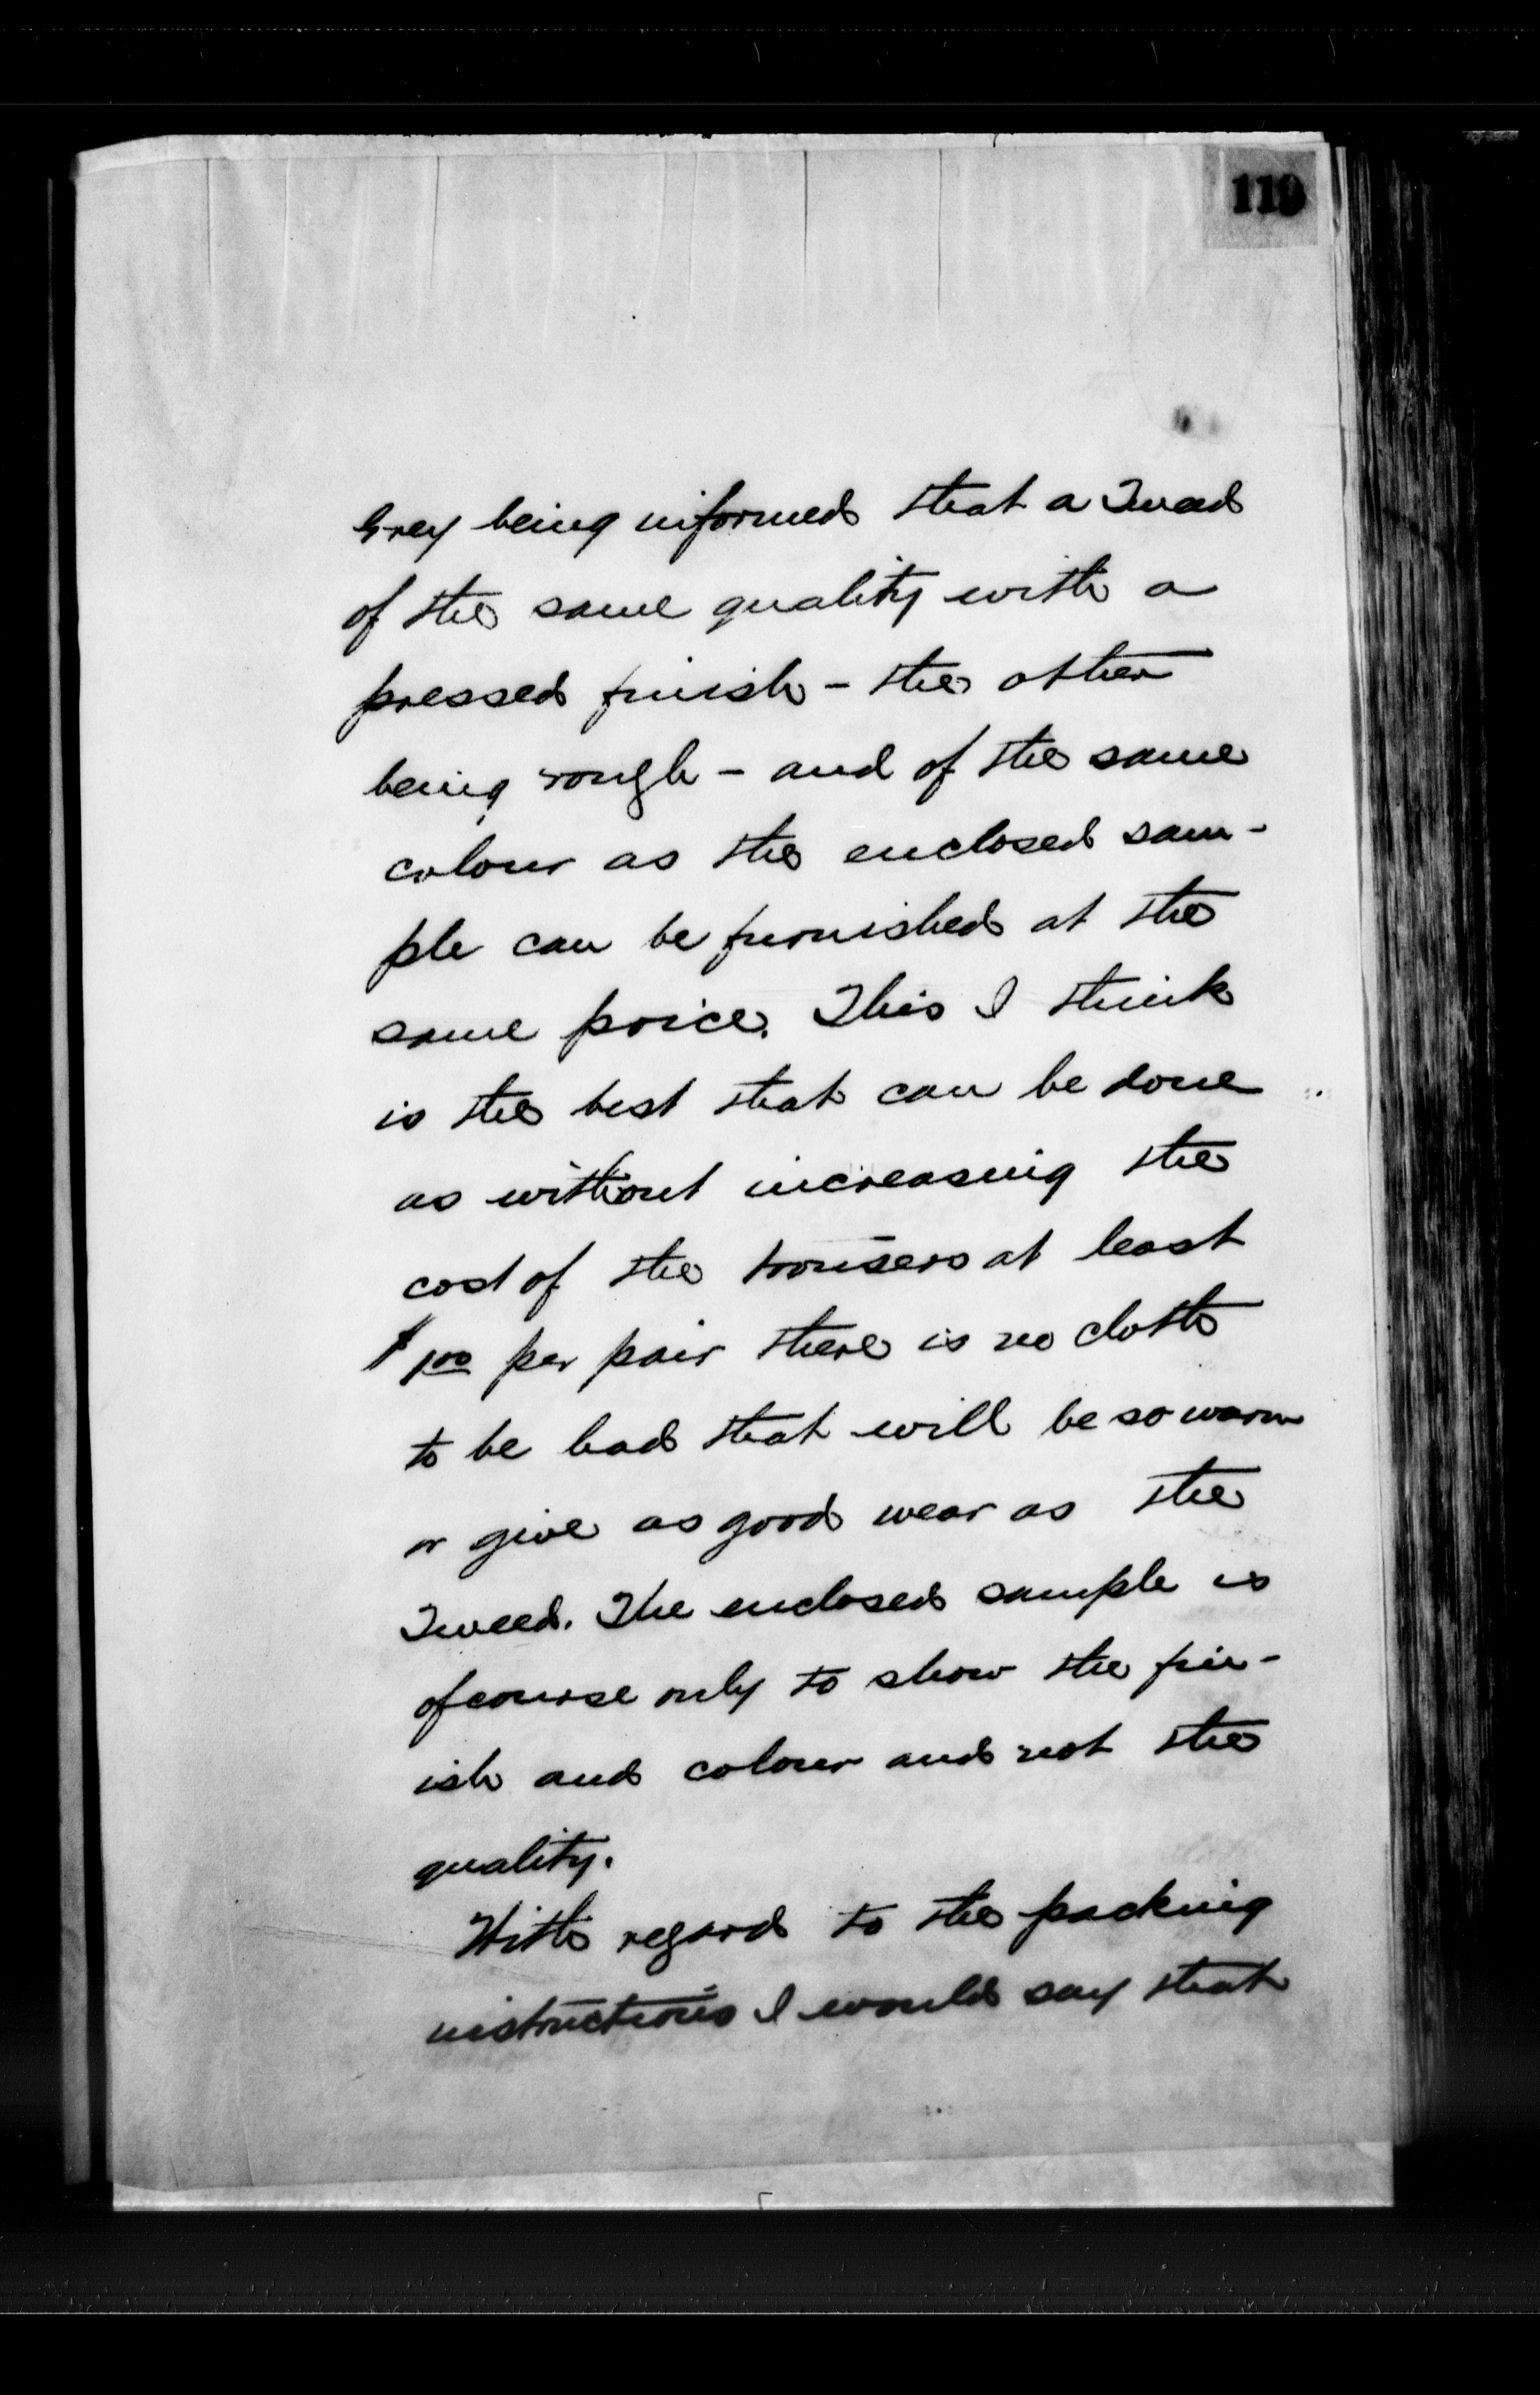 119
Grey being informed that a Tweed
of the same quality with a
pressed finish - the other
being rough - and of the same
colour as the enclosed sam-
ple can be furnished at the
same price. This I think
is the best that can be done
as without increasing the
cost of the trousers at least
$1.00 per pair there is no cloth
to be had that will be so warm
or give as good wear as the
Tweed. The enclosed sample is
of course only to show the fin-
ish and colour and not the
quality.
With regard to the packing
instructions I would say that